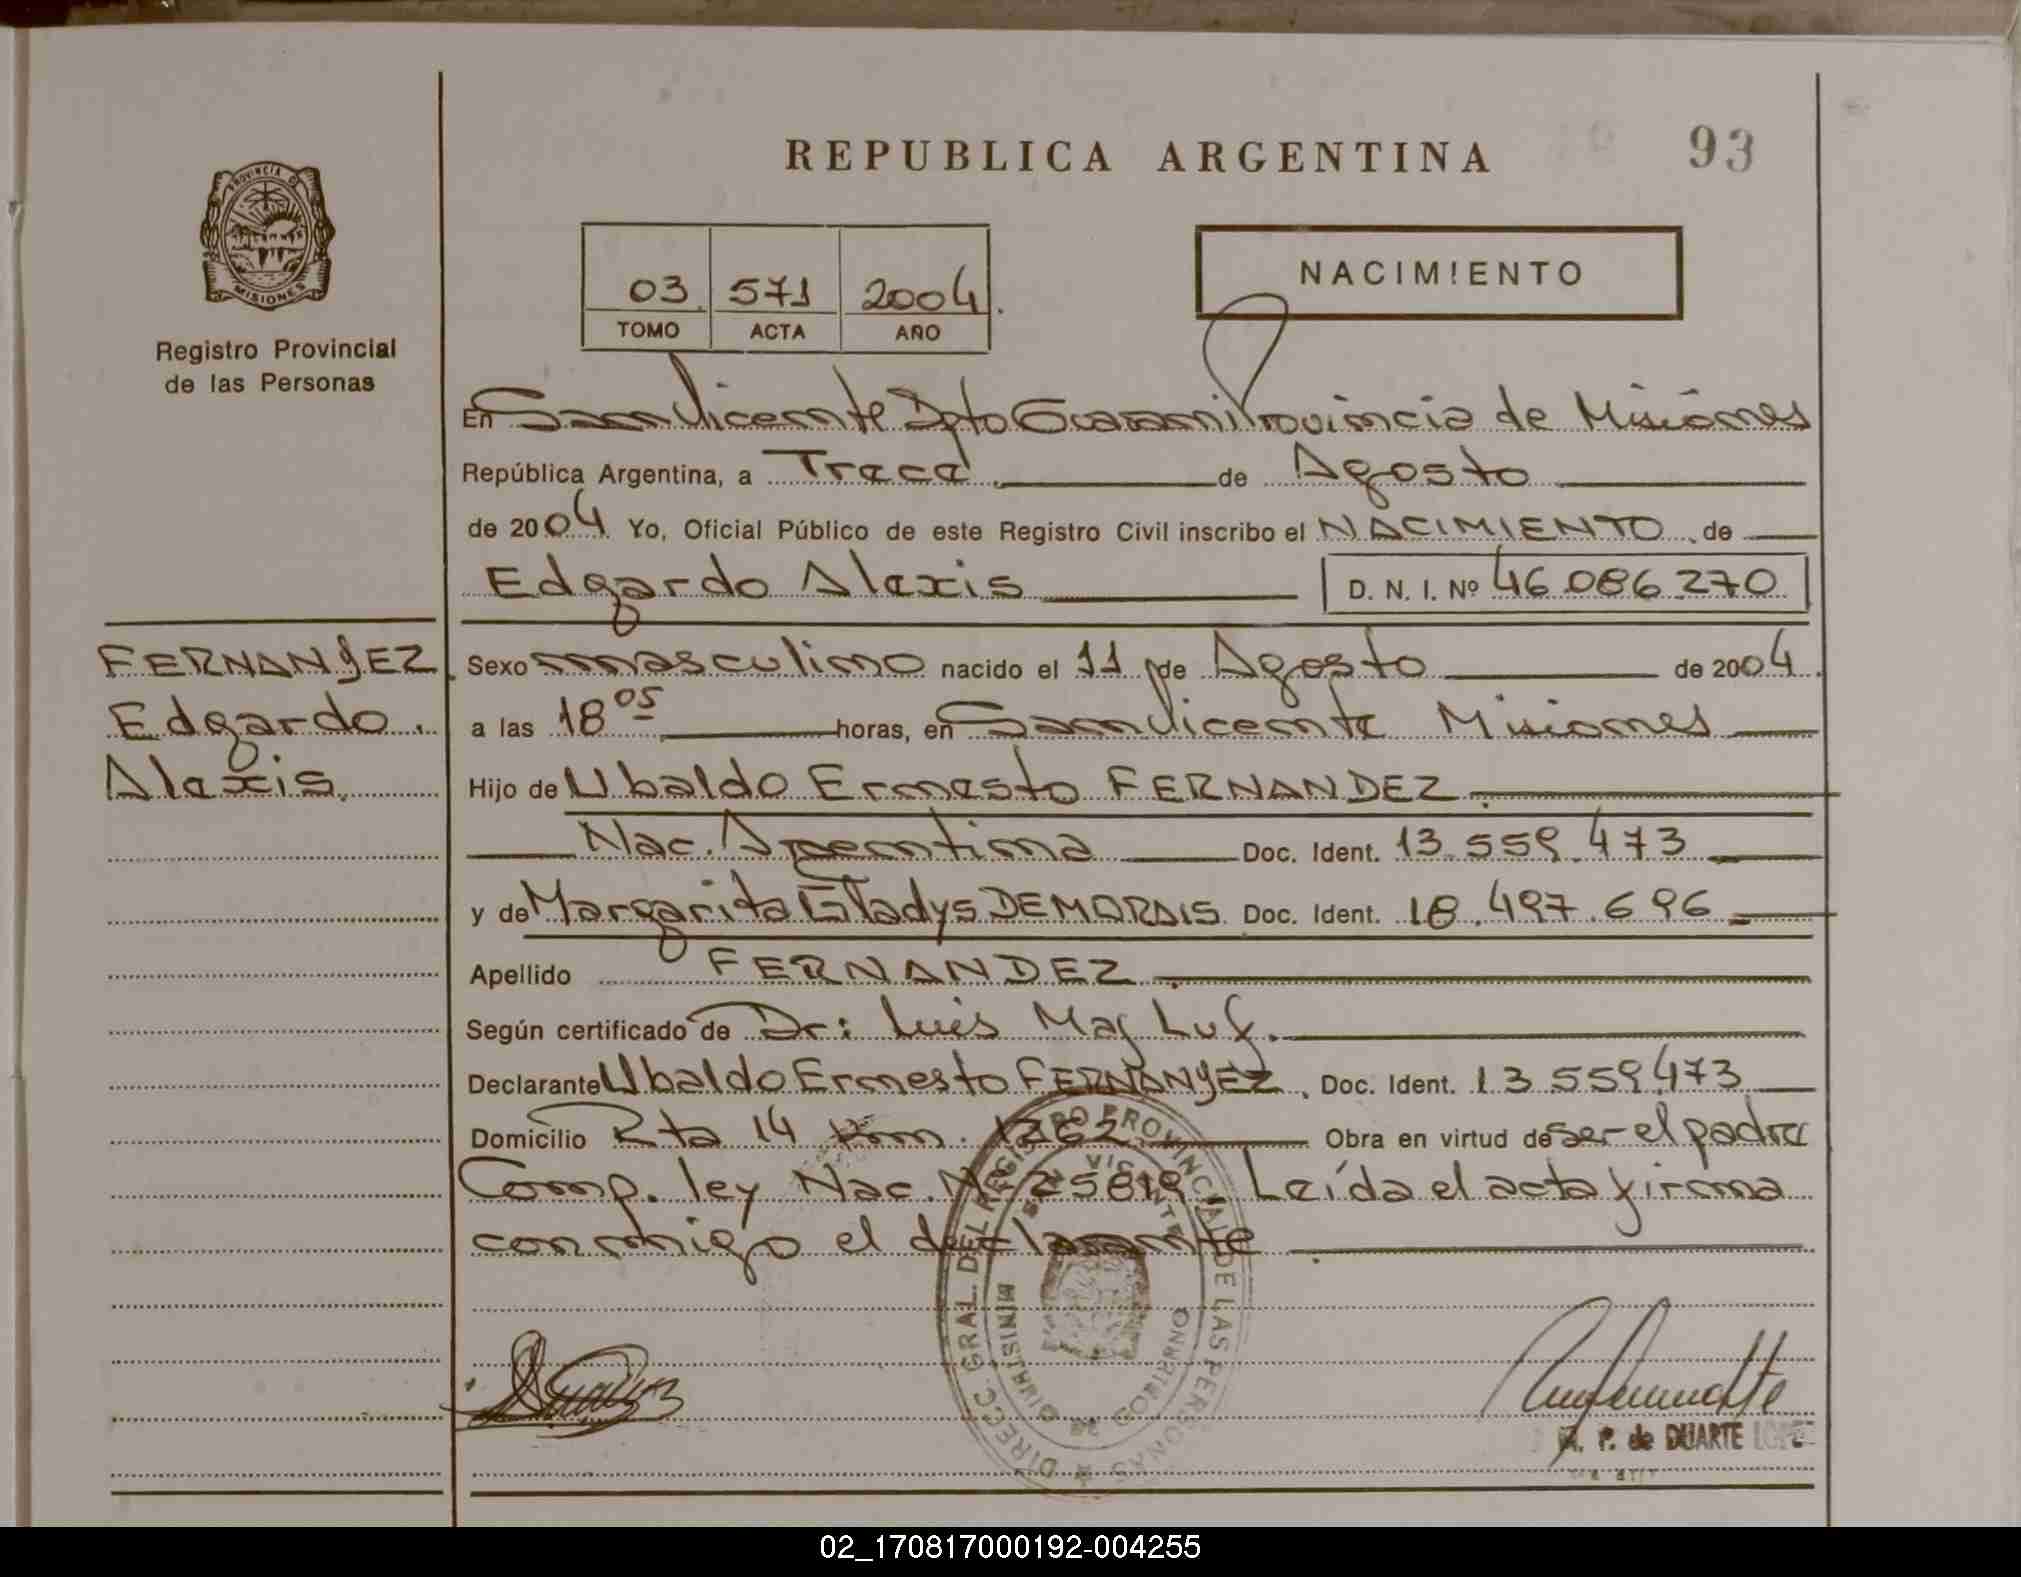 REPUBLICA ARGENTINA
93
PROVINCIA DE
MISIONES
Registro Provincial
de las Personas
03 571 2004
TOMO ACTA AÑO
NACIMIENTO
En San Vicente Dpto Guarani Provincia de Misiones
República Argentina, a Trece de Agosto
de 2004 Yo, Oficial Público de este Registro Civil inscribo el NACIMIENTO de
Edgardo Alexis D. N. I. Nº 46.086.270
FERNANDEZ
Edgardo
Alexis
Sexo masculino nacido el 11 de Agosto de 2004
a las 18 05 horas, en San Vicente Misiones
Hijo de Ubaldo Ernesto FERNANDEZ
Nac. Argentina Doc. Ident. 13.559.473
y de Margarita Gladys DEMORAIS Doc. Ident. 18.497.696
Apellido FERNANDEZ
Según certificado de Dr: Luis
Declarante Ubaldo Ernesto FERNANDEZ, Doc. Ident. 13559473
Domicilio Rta 14 Km. 1262 Obra en virtud de ser el padre
Comp. ley Nac. Nº 25819. Leída el acta firma
conmigo el declarante
DIRECC. GRAL. DEL REGISTRO PROVINCIAL DE LAS PERSONAS
SAN VICENTE
MINISTERIO DE GOBIERNO
P. de DUARTE LOPE
02_170817000192-004255